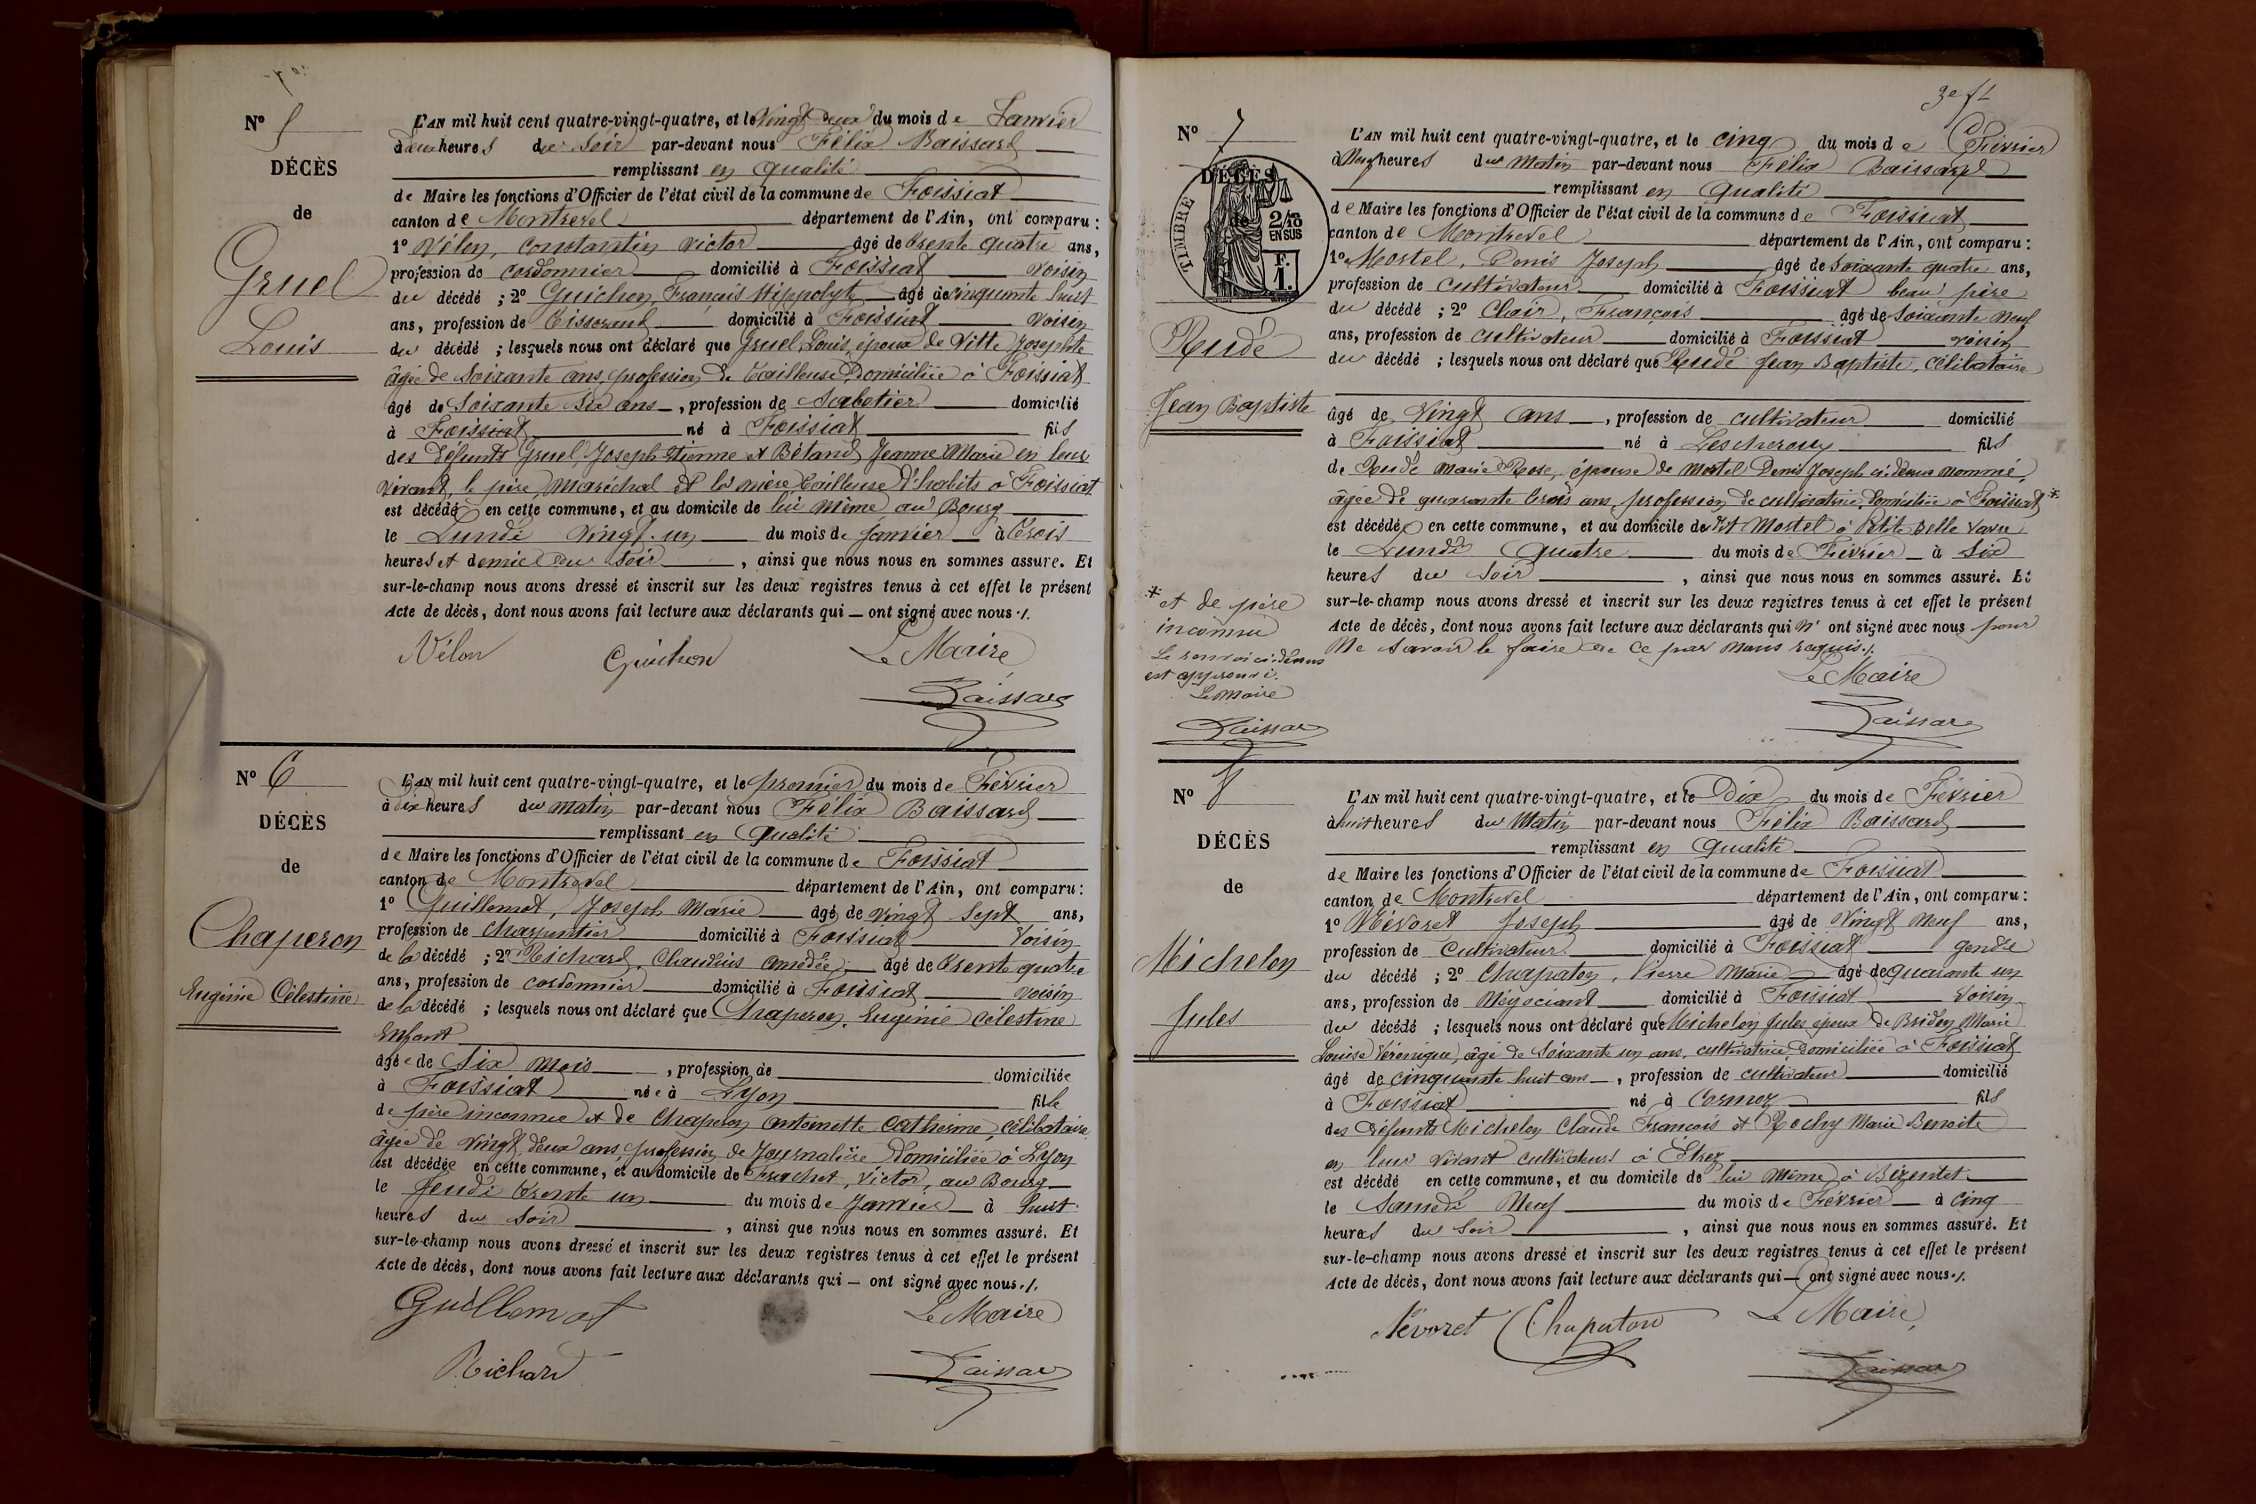 N° 5
DÉCÈS
de
Gruel
Louis
L'AN mil huit cent quatre-vingt-quatre, et le Vingt deux du mois de Janvier
à deux heures du Soir par-devant nous Félix Baissard
remplissant en qualité
de Maire les fonctions d'Officier de l'état civil de la commune de Foissiat
canton de Montrevel département de l'Ain, ont comparu :
1° Vélon, Constantin Victor âgé de trente quatre ans,
profession de cordonnier domicilié à Foissiat voisin
du décédé ; 2° Guichon, François Hippolyte âgé de cinquante huit
ans, profession de Tisserand domicilié à Foissiat voisin
du décédé ; lesquels nous ont déclaré que Gruel, Louis, époux de Vitte Josephte
âgée de soixante ans, profession de tailleuse, domiciliée à Foissiat
âgé de Soixante six ans, profession de Sabotier domicilié
à Foissiat né à Foissiat fils
des défunts Gruel, Joseph Etienne et Bétand Jeanne Marie en leur
vivant, le père Maréchal et la mère tailleuse d'habits à Foissiat
est décédé en cette commune, et au domicile de lui même au Bourg
le Lundi Vingt-un du mois de janvier à trois
heures et demie du Soir, ainsi que nous nous en sommes assuré. Et
sur-le-champ nous avons dressé et inscrit sur les deux registres tenus à cet effet le présent
Acte de décès, dont nous avons fait lecture aux déclarants qui — ont signé avec nous ./.
Vélon Guichon Le Maire
Baissard
N° 6
DÉCÈS
de
Chaperon
Eugénie Célestine
L'AN mil huit cent quatre-vingt-quatre, et le premier du mois de Février
à dix heures du matin par-devant nous Félix Baissard
remplissant en qualité
de Maire les fonctions d'Officier de l'état civil de la commune de Foissiat
canton de Montrevel département de l'Ain, ont comparu :
1° Guillemot, Joseph Marie âgé de vingt sept ans,
profession de charpentier domicilié à Foissiat Voisin
de la décédé ; 2° Richard, Claudius Amédée âgé de trente quatre
ans, profession de cordonnier domicilié à Foissiat voisin
de la décédé ; lesquels nous ont déclaré que Chaperon, Eugénie Célestine
Enfant
âgée de Six mois, profession de domiciliée
à Foissiat née à Lyon fille
de père inconnu et de Chaperon Antoinette Catherine, célibataire
âgée de vingt deux ans, profession de Journalière domiciliée à Lyon
est décédée en cette commune, et au domicile de Frachet, Victor, au Bourg
le Jeudi trente un du mois de Janvier à huit
heures du Soir, ainsi que nous nous en sommes assuré. Et
sur-le-champ nous avons dressé et inscrit sur les deux registres tenus à cet effet le présent
Acte de décès, dont nous avons fait lecture aux déclarants qui — ont signé avec nous ./.
Guillemot Le Maire
Richard Baissard
3e ft
N° 7
DÉCÈS
de
TIMBRE
2/10
EN SUS
F.
1.
Rudé
Jean Baptiste
L'AN mil huit cent quatre-vingt-quatre, et le cinq du mois de Février
à Neuf heures du Matin par-devant nous Félix Baissard
remplissant en qualité
de Maire les fonctions d'Officier de l'état civil de la commune de Foissiat
canton de Montrevel département de l'Ain, ont comparu :
1° Mortel, Denis Joseph âgé de Soixante quatre ans,
profession de cultivateur domicilié à Foissiat beau père
du décédé ; 2° Clair, François âgé de Soixante Neuf
ans, profession de cultivateur domicilié à Foissiat voisin
du décédé ; lesquels nous ont déclaré que Rudé Jean Baptiste, célibataire
âgé de Vingt ans, profession de cultivateur domicilié
à Foissiat né à Lescheroux fils
de Rudé Marie Rose, épouse de Mortel Denis Joseph ci-dessus nommé,
âgée de quarante trois ans, profession de cultivatrice, domiciliée à Foissiat *
est décédé en cette commune, et au domicile de dit Mortel à Petite
le Lundi Quatre du mois de Février à Six
heures du Soir, ainsi que nous nous en sommes assuré. Et
sur-le-champ nous avons dressé et inscrit sur les deux registres tenus à cet effet le présent
Acte de décès, dont nous avons fait lecture aux déclarants qui n' ont signé avec nous pour
ne savoir le faire de ce par nous requis ./.
Le Maire
Baissard
* et de père
inconnu
Le renvoi ci-dessus
est approuvé.
Le Maire
Baissard
N° 8
DÉCÈS
de
Michelon
Jules
L'AN mil huit cent quatre-vingt-quatre, et le Dix du mois de Février
à huit heures du Matin par-devant nous Félix Baissard
remplissant en qualité
de Maire les fonctions d'Officier de l'état civil de la commune de Foissiat
canton de Montrevel département de l'Ain, ont comparu :
1° Névoret Joseph âgé de Vingt Neuf ans,
profession de Cultivateur domicilié à Foissiat gendre
du décédé ; 2° Chapaton, Pierre Marie âgé de quarante un
ans, profession de Négociant domicilié à Foissiat Voisin
du décédé ; lesquels nous ont déclaré que Michelon Jules époux de Bridon Marie
Louise Véronique, âgé de Soixante un ans, cultivatrice, domiciliée à Foissiat
âgé de cinquante huit ans, profession de cultivateur domicilié
à Foissiat né à Cormoz fils
des défunts Michelon Claude François et Rochy Marie Benoite
en leur vivant cultivateurs à Etrez
est décédé en cette commune, et au domicile de lui même à
le Samedi Neuf du mois de Février à cinq
heures du Soir, ainsi que nous nous en sommes assuré. Et
sur-le-champ nous avons dressé et inscrit sur les deux registres tenus à cet effet le présent
Acte de décès, dont nous avons fait lecture aux déclarants qui — ont signé avec nous ./.
Névoret Chapaton Le Maire,
Baissard